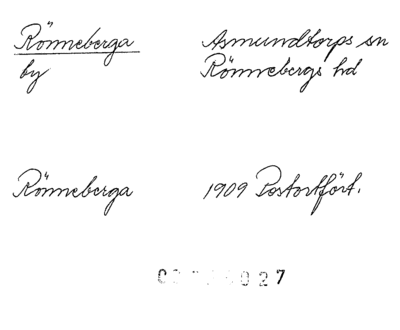 Rönneberga Asmundtorps sn
by Rönnebergs hd
Rönneberga 1909 Postortfört.